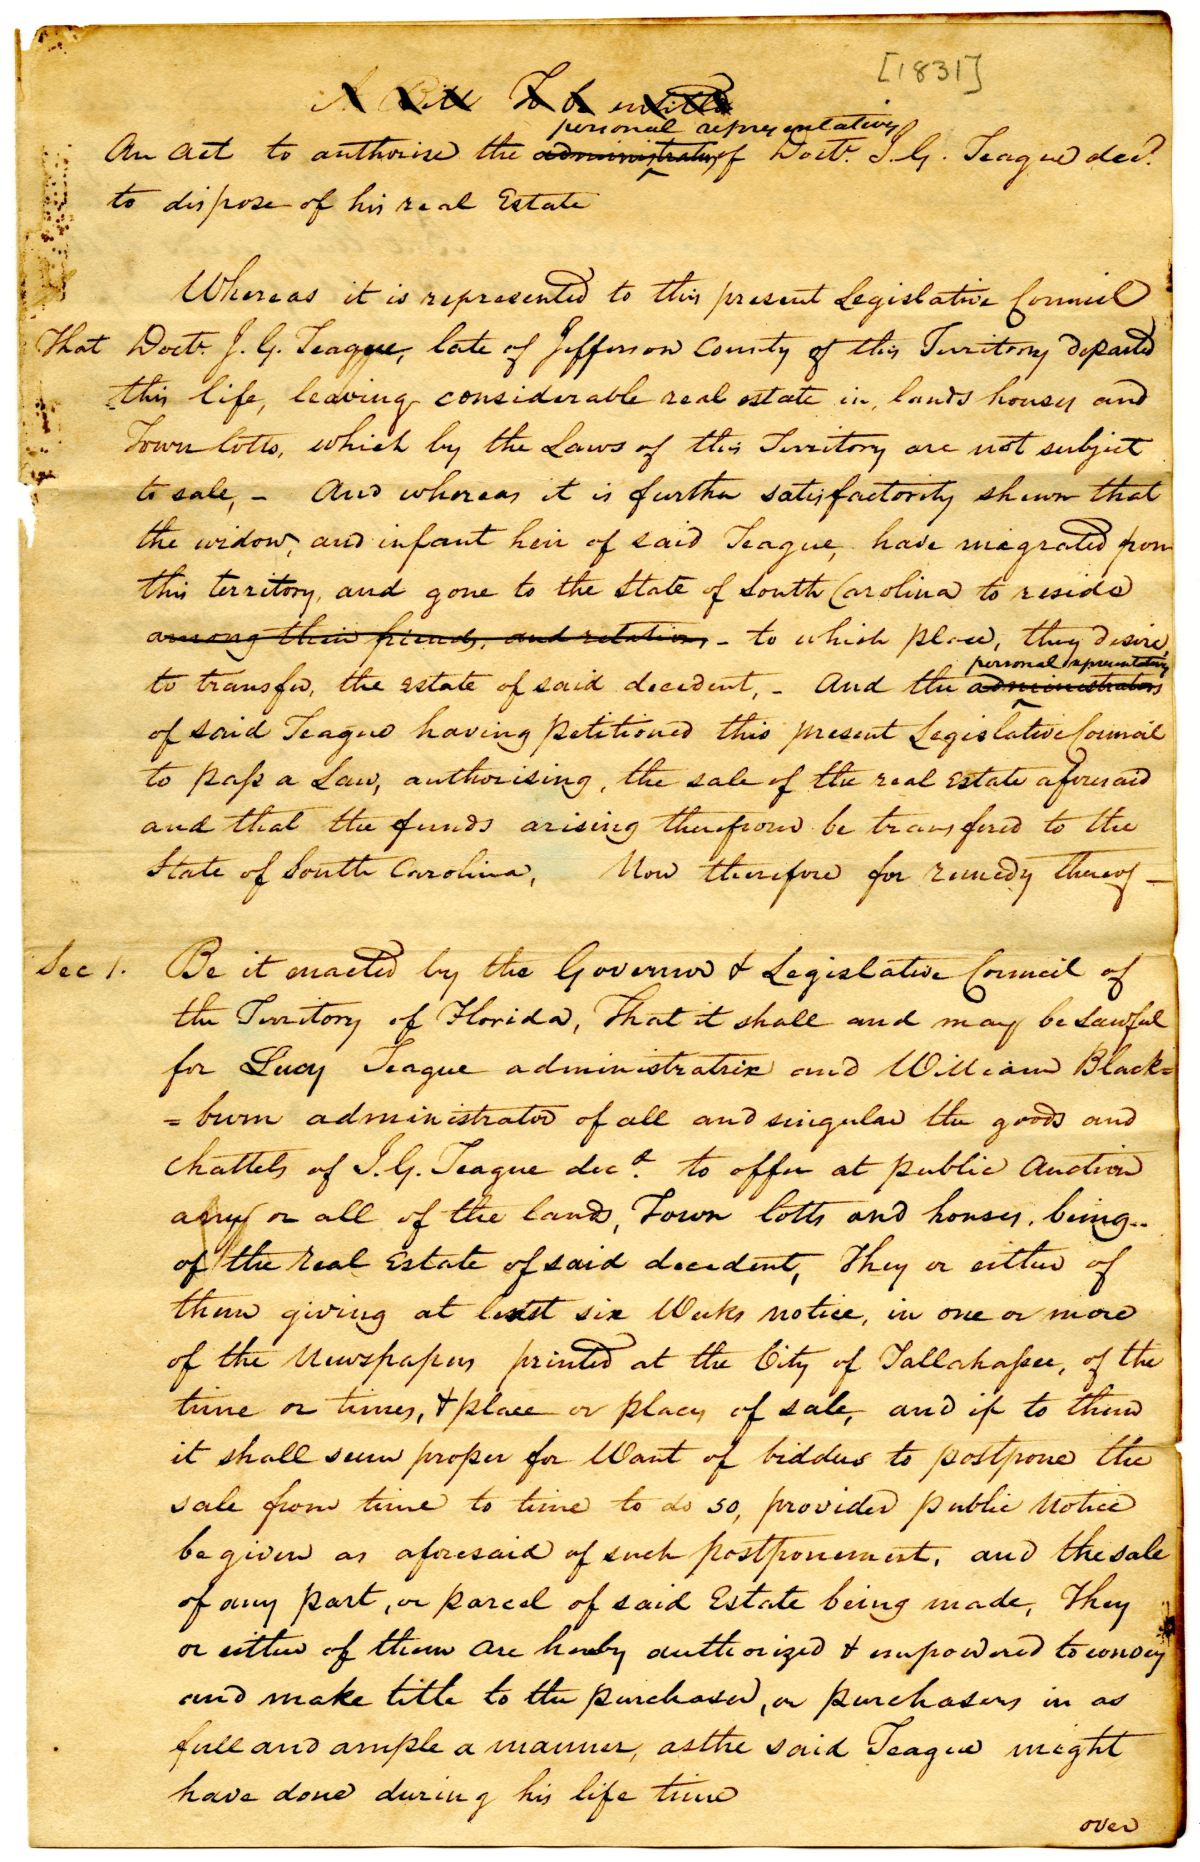 [1831]
A Bill To be entitled
personal representatives
An act to authorise the administrators of Doct.r J. G. Teague dec.d
to dispose of his real Estate
Whereas it is represented to this present Legislative Council
That Doct.r J. G. Teague, late of Jefferson County of this Territory departed
this life, leaving considerable real estate in, lands houses and
Town lotts, which by the Laws of this Territory are not subject
to sale, - And whereas it is further satisfactority shewn that
the widow, and infant heir of said Teague, have migrated from
this territory, and gone to the State of South Carolina to reside
among their friends, and relations, - to which place, they desire,
personal representatives
to transfer, the estate of said decedent, - And the administrators
of said Teague having petitioned this present Legislative Council
to pass a Law, authorising, the sale of the real estate aforesaid
and that the funds arising therefrom be transfered to the
State of South Carolina, Now therefore for remedy thereof -
Sec 1. Be it enacted by the Governor & Legislative Council of
the Territory of Florida, That it shall and may be Lawful
for Lucy Teague administratrix and William Black=
=burn administrator of all and singular the goods and
Chattels of J. G. Teague dec.d to offer at public Auction
any or all of the lands, Town lotts and houses, being..
of the real Estate of said decedent, They or either of
them giving at least six Weeks notice, in one or more
of the Newspapers printed at the City of Tallahassee, of the
time or times, & place or places of sale, and if to them
it shall seem proper for Want of bidders to postpone the
sale from time to time to do so, provided public Notice
be given as aforesaid of such postponement, and the sale
of any part, or parcel of said Estate being made, They
or either of them are hereby authorized & empowered to convey
and make title to the purchaser, or purchasers in as
full and ample a manner, as the said Teague might
have done during his life time
over